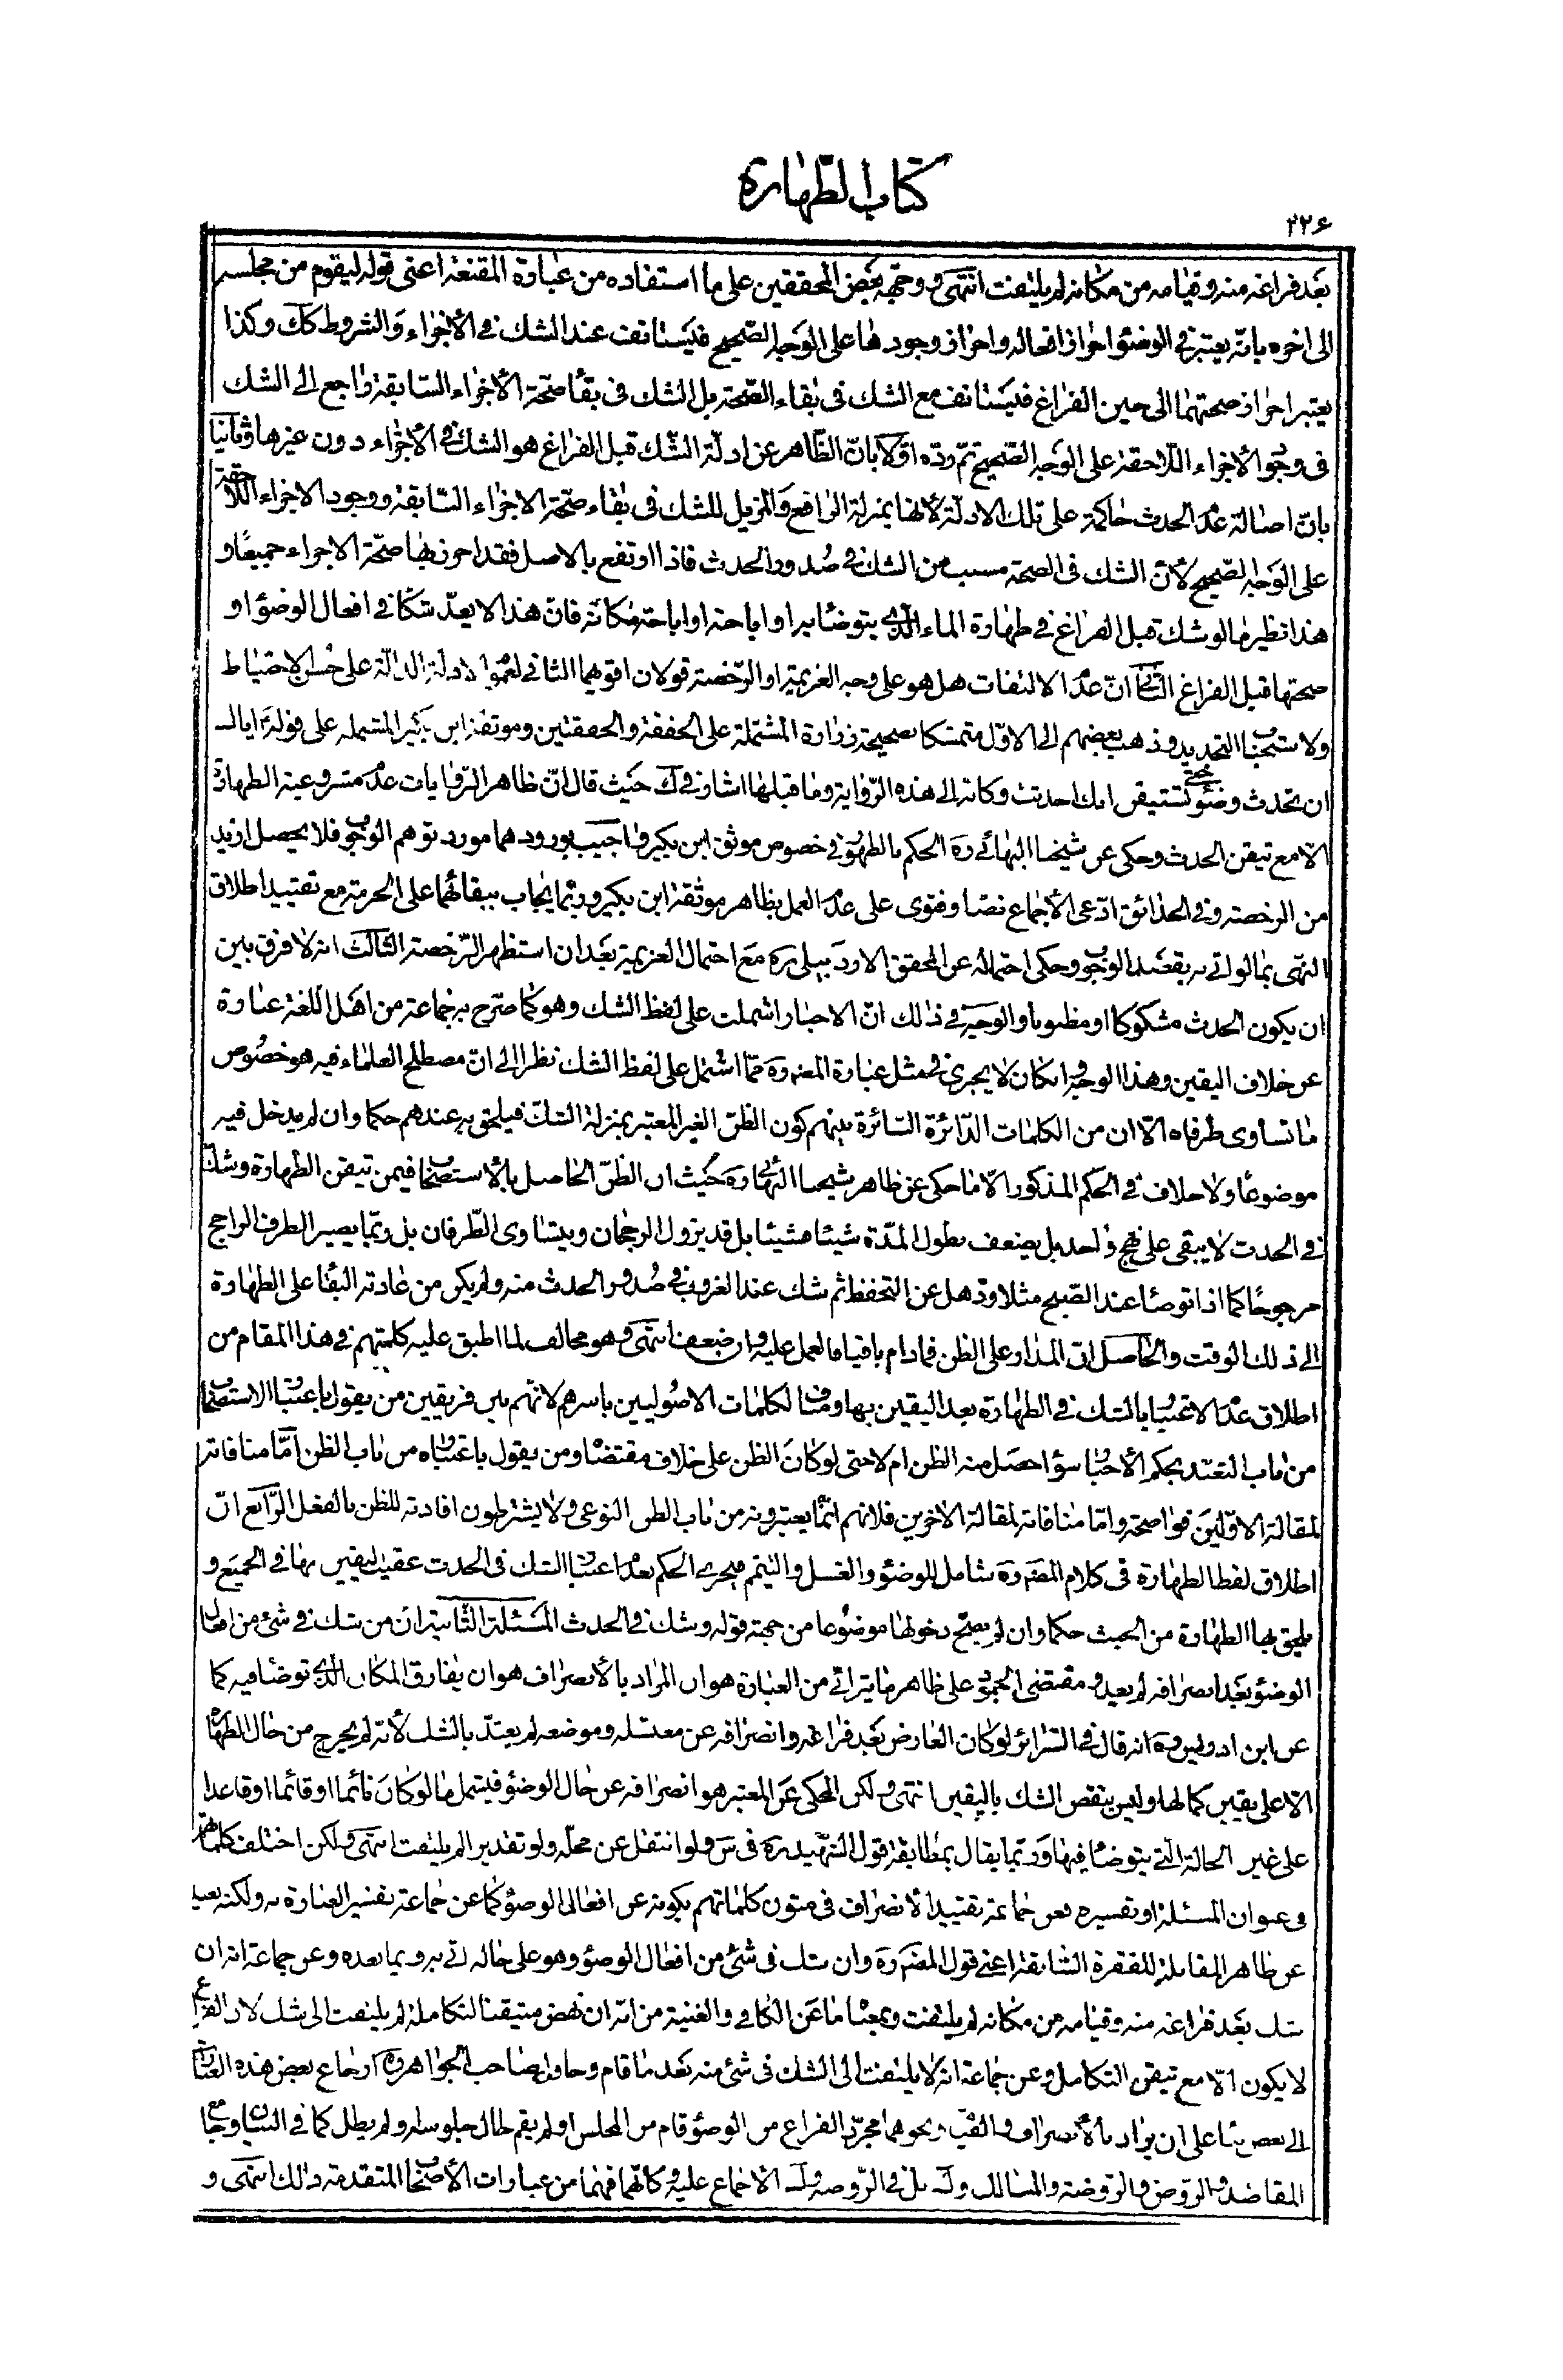 كتاب الطهارة
٢٢۶
بعد فراغه منه وقيامه من مكانه لم يلتفت انتهى ووجّهه بعض المحققين على ما استفاده من عبارة المقنعة اعنى قوله ليقوم من مجلسه
الى اخره بانّه يعتبر في الوضوء احراز افعاله واحراز وجودها على الوجه الصّحيح فيستانف عند الشك في الأجزاء والشروط كك وكذا
يعتبر احراز صحتهما الى حين الفراغ فيستانف مع الشك في بقاء الصّحة بل الشك في بقاء صحّة الأجزاء السّابقة راجع الى الشك
في وجود الأجزاء اللّاحقة على الوجه الصّحيح ثم ردّه اوّلا بانّ الظّاهر عن ادلّة الشّك قبل الفراغ هو الشك في الأجزاء دون غيرها وثانيا
بانّ اصالة عدم الحدث حاكمة على تلك الادلّة لأنها بمنزلة الرافع والمزيل للشك في بقاء صحّة الاجزاء السّابقة ووجود الاجزاء اللاحقة
على الوجه الصّحيح لأنّ الشك في الصحة مسبب من الشك في صدور الحدث فاذا ارتفع بالاصل فقد احرز بها صحّة الاجزاء جميعًا و
هذا نظير ما لو شك قبل الفراغ في طهارة الماء الّذي يتوضّا به او اباحته او اباحة مكانه فانّ هذا لا يعدّ شكّا في افعال الوضوء او
صحتها قبل الفراغ الثّاني انّ عدم الالتفات هل هو على وجه العزيمة او الرّخصة قولان اقويهما الثاني لعموم الادلة الدالة على حسن الاحتياط
ولاستحباب التجديد وذهب بعضهم الى الاوّل متمسّكا بصحيحة زرارة المشتملة على الخفقة والخفقتين وموثقة ابن بكير المشتملة على قوله ع اياك
ان تحدث وضوء حتّى تستيقن انك احدثت وكانه الى هذه الرّواية وما قبلها اشار في ك حيث قال انّ ظاهر الرّوايات عدم مشروعية الطهارة
الّا مع تيقن الحدث وحكى عن شيخنا البهائي ره الحكم بالظهور في خصوص موثق ابن بكير واجيب بورودهما مورد توهم الوجوب فلا يحصل ازيد
من الرخصة وفي الحدائق ادّعى الأجماع نصّا وفتوى على عدم العمل بظاهر موثقة ابن بكير وربّما يجاب ببقائهما على الحرمة مع تقييد اطلاق
النهى بما لو اتى به بقصد الوجوب وحكى احتماله عن المحقق الاردبيلى ره مع احتمال العزيمة بعد ان استظهر الرّخصة الثّالث انه لا فرق بين
ان يكون الحدث مشكوكا او مظنونا والوجه في ذلك انّ الاخبار اشتملت على لفظ الشك وهو كما صرّح به جماعة من اهل اللّغة عبارة
عن خلاف اليقين وهذا الوجه وان كان لا يجرى في مثل عبارة المصنف ره ممّا اشتمل على لفظ الشك نظرا الى انّ مصطلح العلماء فيه هو خصوص
ما تساوى طرفاه الّا ان من الكلمات الدّائرة السّائرة بينهم كون الظنّ الغير المعتبر بمنزلة الشكّ فيلحق به عندهم حكما وان لم يدخل فيه
موضوعًا ولا خلاف في الحكم المذكور الّا ما حكى عن ظاهر شيخنا البهائي ره حيث ان الظنّ الحاصل بالأستصحاب فيمن تيقن الطهارة وشكّ
في الحدث لا يبقى على نهج واحد بل يضعف بطول المدّة شيئا فشيئا بل قد يزول الرجحان ويتساوى الطّرفان بل ربّما يصير الطرف الراجح
مرجوحًا كما اذا توضّا عند الصّبح مثلا وذهل عن التحفظ ثم شك عند الغروب في صدور الحدث منه ولم يكن من عادته البقاء على الطهارة
الى ذلك الوقت والحاصل انّ المدار على الظن فما دام باقيا فالعمل عليه وان ضعف انتهى وهو مخالف لما اطبق عليه كلمتهم في هذا المقام من
اطلاق عدم الاعتبار بالشك في الطهارة بعد اليقين بها ومناف لكلمات الاصوليين باسرهم لانهم بين فريقين من يقول باعتبار الاستصحاب
من باب التعبّد بحكم الأخبار سواء حصل منه الظن ام لا حتى لو كان الظن على خلاف مقتضاه ومن يقول باعتباره من باب الظن امّا منافاته
لمقالة الاوّلين فواضحة وامّا منافاته لمقالة الاخرين فلانهم انّما يعتبرونه من باب الظن النوعى ولا يشترطون افادته للظن بالفعل الرّابع انّ
اطلاق لفظ الطهارة في كلام المصنف ره شامل للوضوء والغسل والتيمم فيجرى الحكم بعدم اعتبار الشك في الحدث عقيب اليقين بها في الجميع و
يلحق بها الطهارة من الخبث حكما وان لم يصحّ دخولها موضوعا من جهة قوله وشك في الحدث المسئلة الثّانية ان من شك في شئ من افعال
الوضوء بعد انصرافه لم يعد ومقتضى الجمود على ظاهر ما يترائى من العبارة هو ان المراد بالأنصراف هو ان يفارق المكان الّذى توضّا فيه كما
عن ابن ادريس ره انه قال في السّرائر لو كان العارض بعد فراغه وانصرافه عن مغتسله وموضعه لم يعتدّ بالشك لأنه لم يخرج من حال الطهارة
الّا على يقين كمالها وليس ينقض الشك باليقين انتهى ولكن المحكى عن المعتبر هو انصرافه عن حال الوضوء فيشمل ما لو كان نائما او قائما او قاعدا
على غير الحالة الّتى يتوضّا فيها وربّما يقال بمطابقة قول الشّهيد ره في س ولو انتقل عن محلّه ولو تقديرا لم يلتفت انتهى ولكن اختلف كلماتهم
في عنوان المسئلة او تفسيره فعن جماعة تقييد الأنصراف في متون كلماتهم بكونه عن افعال الوضوء كما عن جماعة تفسير العبارة به ولكنه بعيد
عن ظاهر المقابلة للفقرة السّابقة اعنى قول المصنف ره وان شك في شئ من افعال الوضوء وهو على حاله اتى به وبما بعده وعن جماعة انه ان
شك بعد فراغه منه وقيامه من مكانه لم يلتفت وبمعناه ما عن الكافى والغنية من انّه ان نهض متيقنا لتكامله لم يلتفت الى شك لان الفراغ
لا يكون الّا مع تيقن التكامل وعن جماعة انه لا يلتفت الى الشك في شئ منه بعد ما قام وحاول صاحب الجواهر ره ارجاع بعض هذه العبارات
الى بعض بناء على ان يراد بالأنصراف والقيام ونحوهما مجرّد الفراغ من الوضوء قام من المجلس او لم يقم طال جلوسه او لم يطل كما في البيان وجامع
المقاصد والرّوض والرّوضة والمسالك وك بل في الرّوضة وك الأجماع عليه وكانّهما فهما من عبارات الأصحاب المتقدمة ذلك انتهى و